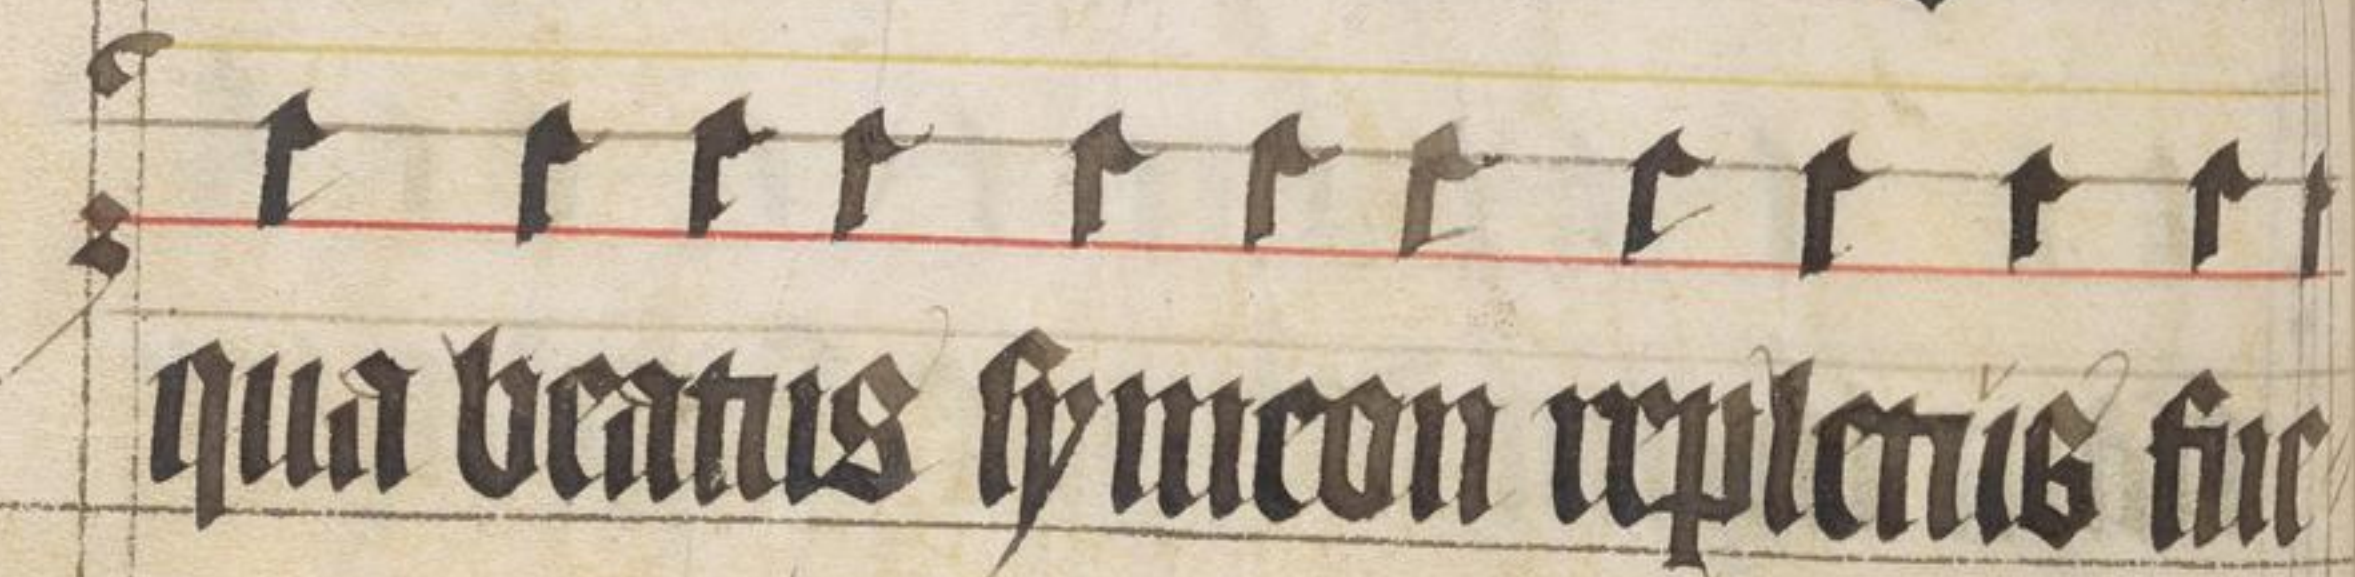 qua beatus symeon repletus fue